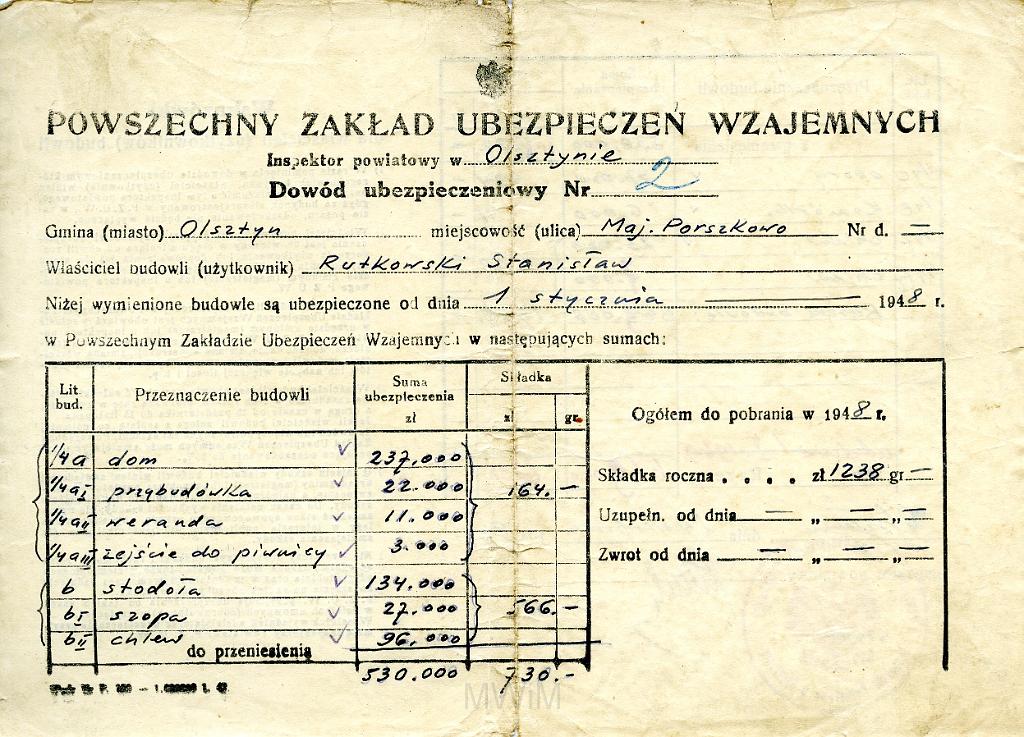 POWSZECHNY ZAKŁAD UBEZPIECZEŃ WZAJEMNYCH
Inspektor powiatowy w Olsztynie
Dowód ubezpieczeniowy Nr 2
Gmina (miasto) Olsztyn miejscowość (ulica) Maj. Porszkowo Nr d. —
Właściciel budowli (użytkownik) Rutkowski Stanisław
Niżej wymienione budowle są ubezpieczone od dnia 1 stycznia 1948 r.
w Powszechnym Zakładzie Ubezpieczeń Wzajemnych w następujących sumach:
Lit. bud. Przeznaczenie budowli Suma ubezpieczenia zł Składka zł gr.
Ogółem do pobrania w 1948 r.
1/4a dom 237.000
1/4a I przybudówka 22.000 164.—
1/4a II weranda 11.000
1/4a III zejście do piwnicy 3.000
b stodoła 134.000
b I szopa 27.000 566.—
b II chlew 96.000
do przeniesienia
530.000 730.—
Składka roczna . . . . zł 1238 gr —
Uzupełn. od dnia — „ — „ —
Zwrot od dnia — „ — „ —
MWiM